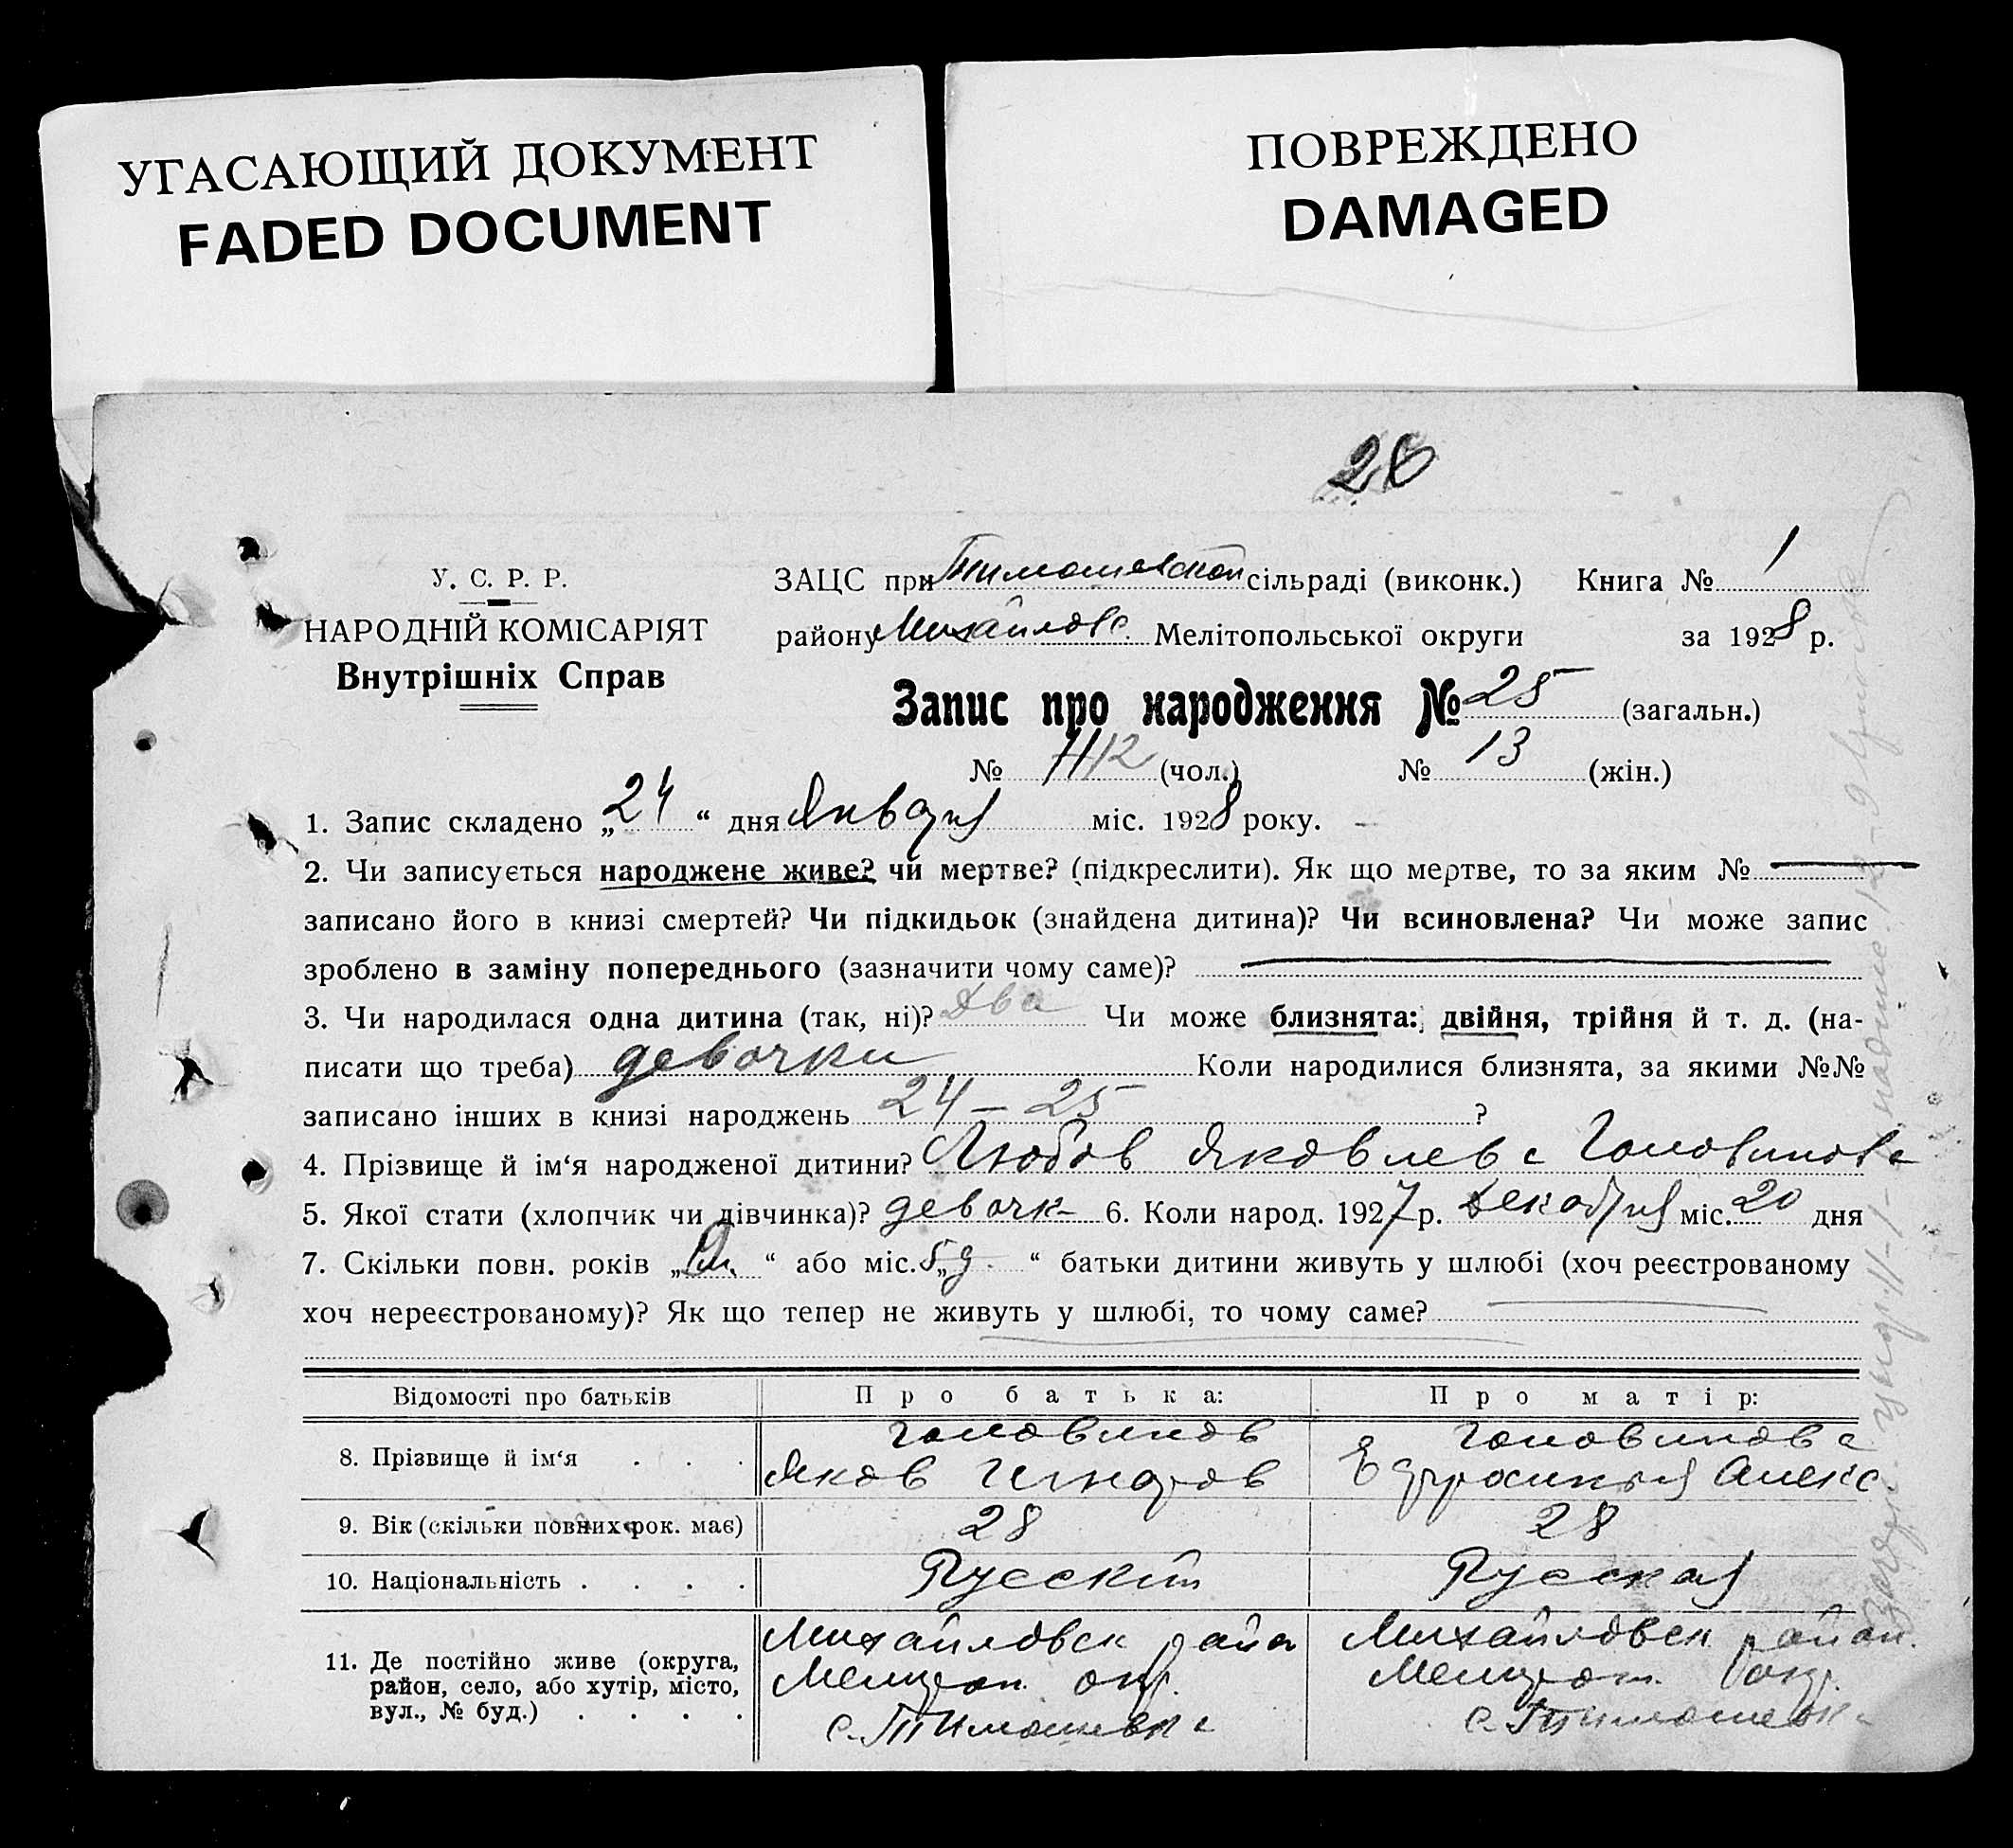 УГАСАЮЩИЙ ДОКУМЕНТ
FADED DOCUMENT
ПОВРЕЖДЕНО
DAMAGED
28
У. С. Р. Р.
НАРОДНІЙ КОМІСАРІЯТ
Внутрішніх Справ
ЗАЦС при Тимошевской сільраді (виконк.) Книга № 1
району Михайловс. Мелітопольської округи за 1928 р.
Запис про народження № 25 (загальн.)
№ 12 (чол.) № 13 (жін.)
1. Запис складено „24“ дня Января міс. 1928 року.
2. Чи записується народжене живе? чи мертве? (підкреслити). Як що мертве, то за яким №
записано його в книзі смертей? Чи підкидьок (знайдена дитина)? Чи всиновлена? Чи може запис
зроблено в заміну попереднього (зазначити чому саме)?
3. Чи народилася одна дитина (так, ні)? Два Чи може близнята: двійня, трійня й т. д. (на-
писати що треба) девочки Коли народилися близнята, за якими №№
записано інших в книзі народжень 24 — 25 ?
4. Прізвище й ім‘я народженої дитини? Любов Яковлева Головинова
5. Якої стати (хлопчик чи дівчинка)? девочк 6. Коли народ. 1927 р. Декабря міс. 20 дня
7. Скільки повн. років „ “ або міс. „ “ батьки дитини живуть у шлюбі (хоч реєстрованому
хоч нереєстрованому)? Як що тепер не живуть у шлюбі, то чому саме?
Відомості про батьків Про батька: Про матір:
8. Прізвище й ім‘я . . . Головинов Яков Головинова Ефросинья Алекс
9. Вік (скільки повних рок. має) 28 28
10. Національність . . . . Русский Русская
11. Де постійно живе (округа,
район, село, або хутір, місто,
вул., № буд.) . . . .
Михайловск района
Мелитоп. окр.
с. Тимошевка
Михайловск район.
Мелитоп. окр.
с. Тимошевка